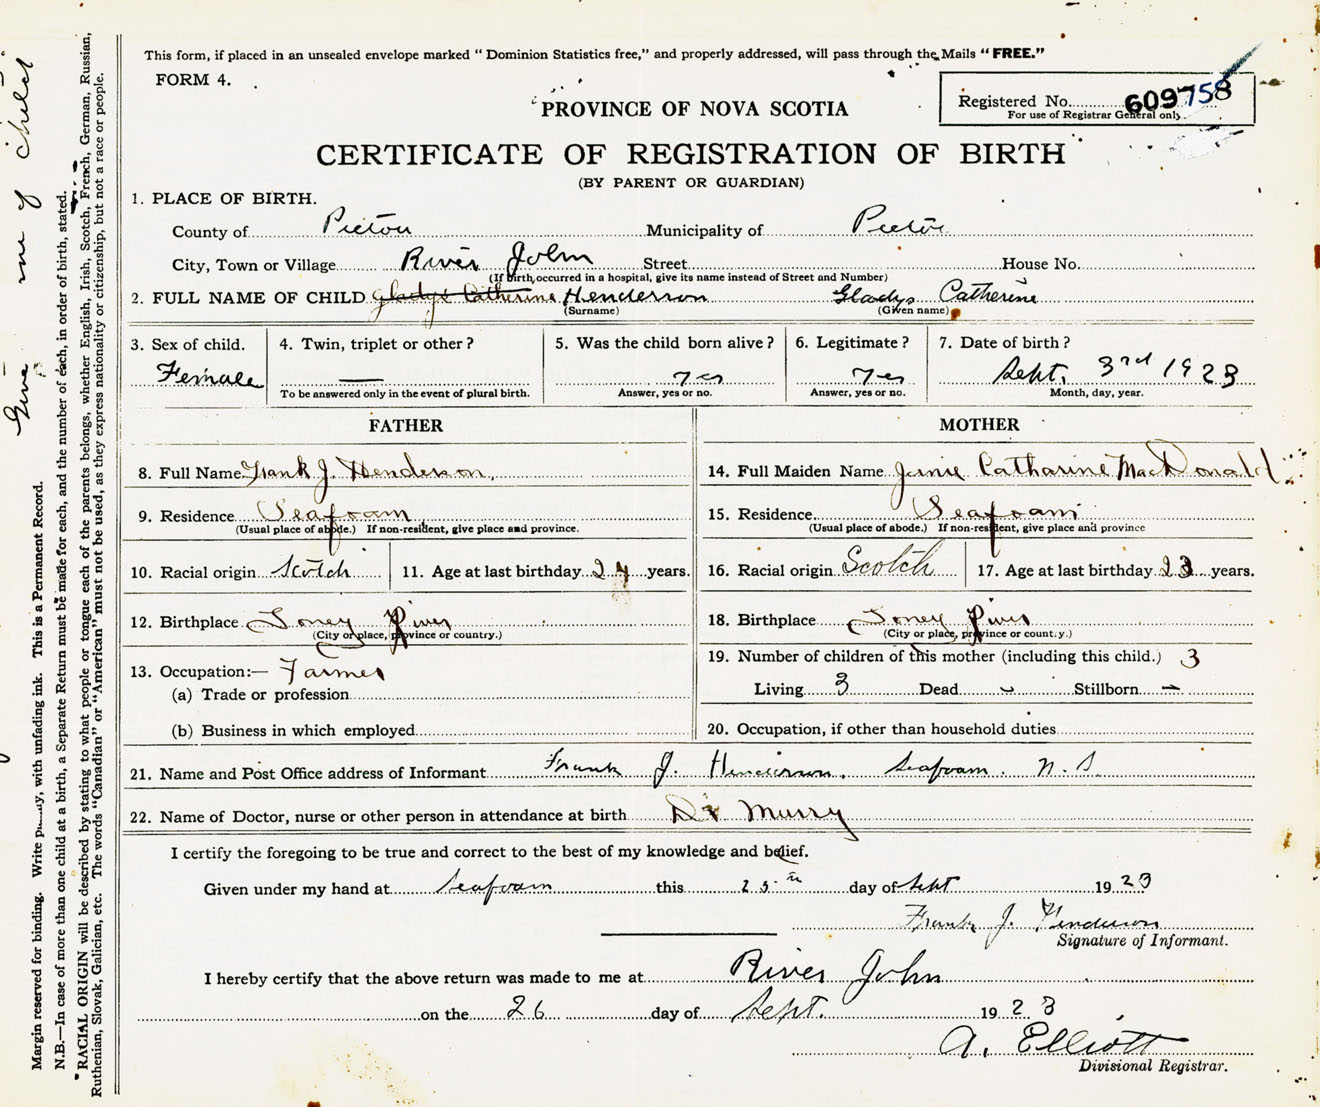 This form, if placed in an unsealed envelope marked "Dominion Statistics free," and properly addressed, will pass through the Mails "FREE."
FORM 4.
Registered No. 609758
For use of Registrar General only.
PROVINCE OF NOVA SCOTIA
CERTIFICATE OF REGISTRATION OF BIRTH
(BY PARENT OR GUARDIAN)
1. PLACE OF BIRTH.
County of Pictou Municipality of Pictou
City, Town or Village River John Street House No.
(If birth occurred in a hospital, give its name instead of Street and Number)
2. FULL NAME OF CHILD Gladys Catherine Henderson Gladys Catherine
(Surname) (Given name)
3. Sex of child. 4. Twin, triplet or other? 5. Was the child born alive? 6. Legitimate? 7. Date of birth?
Female — Yes Yes Sept. 3rd 1923
To be answered only in the event of plural birth. Answer, yes or no. Answer, yes or no. Month, day, year.
FATHER
8. Full Name Frank J. Henderson,
9. Residence Seafoam
(Usual place of abode.) If non-resident, give place and province.
10. Racial origin Scotch 11. Age at last birthday 24 years.
12. Birthplace Toney River
(City or place, province or country.)
13. Occupation:— Farmer
(a) Trade or profession
(b) Business in which employed
MOTHER
14. Full Maiden Name Janie Catharine MacDonald
15. Residence Seafoam
(Usual place of abode.) If non-resident, give place and province
16. Racial origin Scotch 17. Age at last birthday 23 years.
18. Birthplace Toney River
(City or place, province or country.)
19. Number of children of this mother (including this child.) 3
Living 3 Dead - Stillborn -
20. Occupation, if other than household duties
21. Name and Post Office address of Informant Frank J. Henderson. Seafoam. N. S.
22. Name of Doctor, nurse or other person in attendance at birth Dr Murry
I certify the foregoing to be true and correct to the best of my knowledge and belief.
Given under my hand at Seafoam this 25th day of Sept 1923
Frank J. Henderson
Signature of Informant.
I hereby certify that the above return was made to me at River John
on the 26 day of Sept. 1923
A. Elliott
Divisional Registrar.
Give name of child
Margin reserved for binding. Write with unfading ink. This is a Permanent Record.
N.B.—In case of more than one child at a birth, a Separate Return must be made for each, and the number of each, in order of birth, stated.
RACIAL ORIGIN will be described by stating to what people or tongue each of the parents belongs, whether English, Irish, Scotch, French, German, Russian,
Ruthenian, Slovak, Galician, etc. The words "Canadian" or "American" must not be used, as they express nationality or citizenship, but not a race or people.